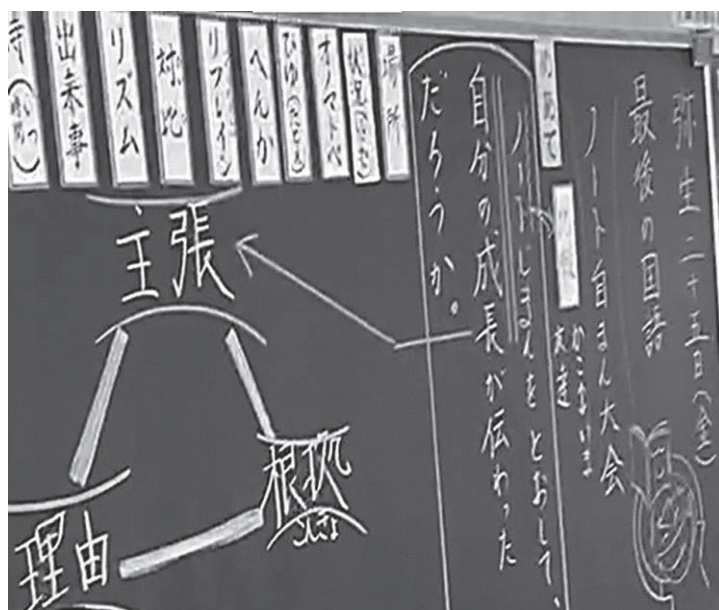 弥生二十五日(金)
最後の国語
ノート自まん大会
友達
めあて
ノートじまんをとおして、
自分の成長が伝わった
だろうか。
場所
オノマトペ
ひゆ(たとえ)
へんか
リフレイン
対比
リズム
出来事
主張
根拠
こんきょ
理由